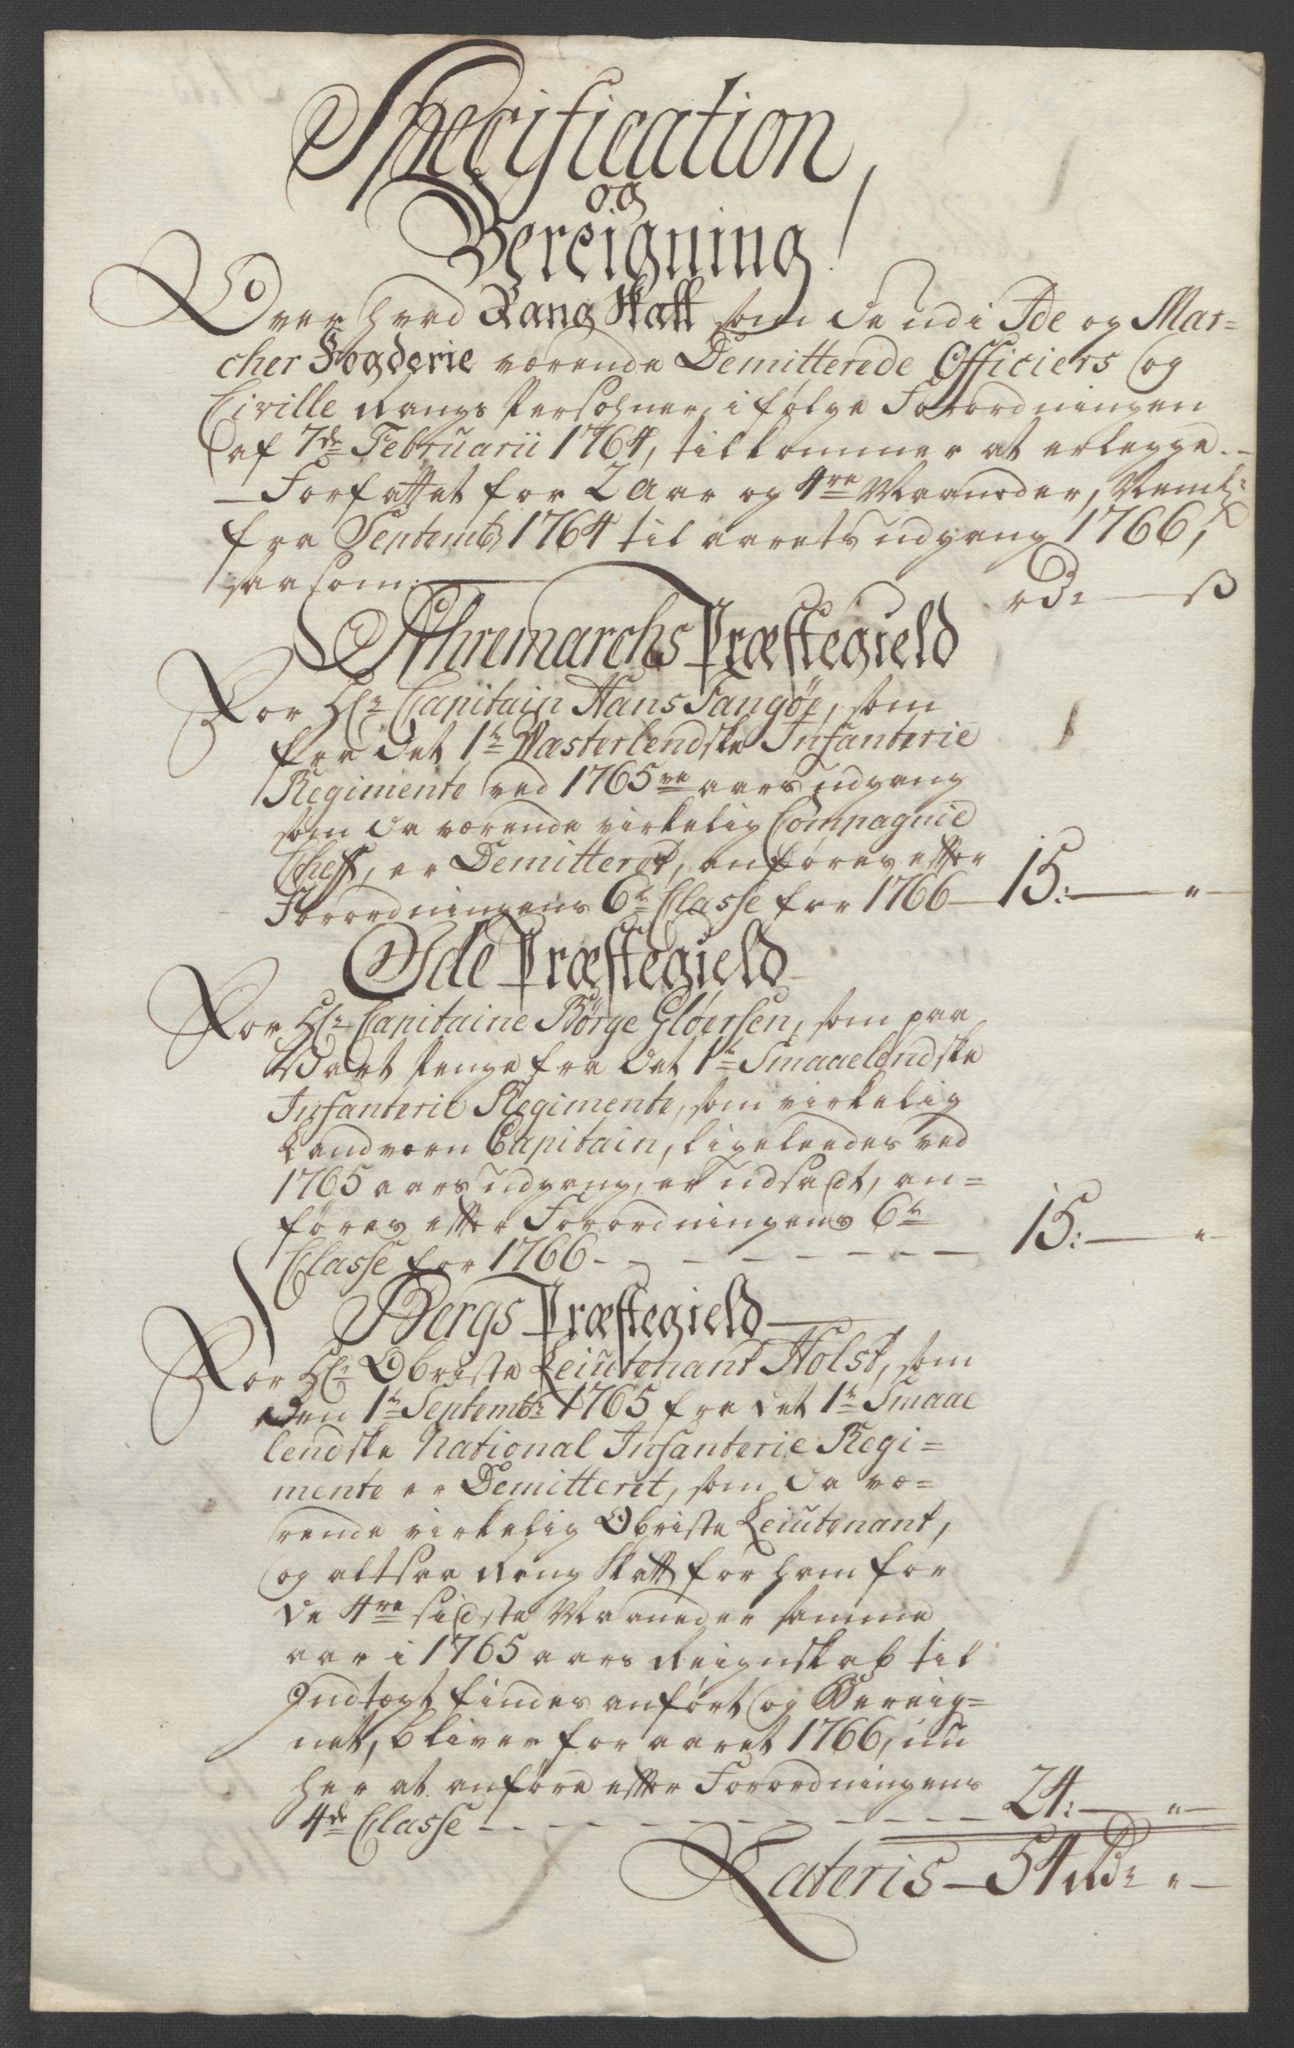 Specification
og
Bereigning
Over hvad Rang Skatt som de udi Ide og Mar-
cher Fogderie værende Demitterede Officiers og
Civille Rangs Persohner, i følge Forordningen
af 7de Februarii 1764, tilkommer at erlegge.
Forfattet for 2 Aar og 4re Maaneder, Neml:
fra Septembr 1764 til aarets udgang 1766,
saasom:
rd: ß
Ahremarchs Præstegield
For Hr: Capitain Hans Tangøe, som
fra det 1te Vasterlendske Infanterie
Regimente ved 1765ve aars udgang
som da værende virkelig Compagnie
Cheff, er Demitteret, anføres effter
Forordningens 6te Classe for 1766 — 15: — "
Ide Præstegield
For Hr: Capitaine Børge Gløersen, som paa
Vart Penge fra det 1te Smaaelendske
Infanterie Regimente, som virkelig
Landværn Capitain, ligeleedes ved
1765 aars udgang, er udsadt, an=
føres effter Forordningens 6te
Classe for 1766 - - - - - 15: — "
Bergs Præstegield
For Hr: Obriste Leiutenant Holst, som
den 1te Septembr: 1765 fra det 1te Smaae
lendske National Infanterie Regi=
mente er Demitteret, som da væ=
rende virkelig Obriste Leiutenant,
og altsaa Rang Skatt for ham for
de 4re sidste Maaneder samme
aar i 1765 aars Reignskab til
Indtægt findes anført og Bereig=
net, bliver for aaret 1766, nu
her at anføre effter Forordningens
4de Classe - - - - - 24: — "
Lateris — 54 rd: "